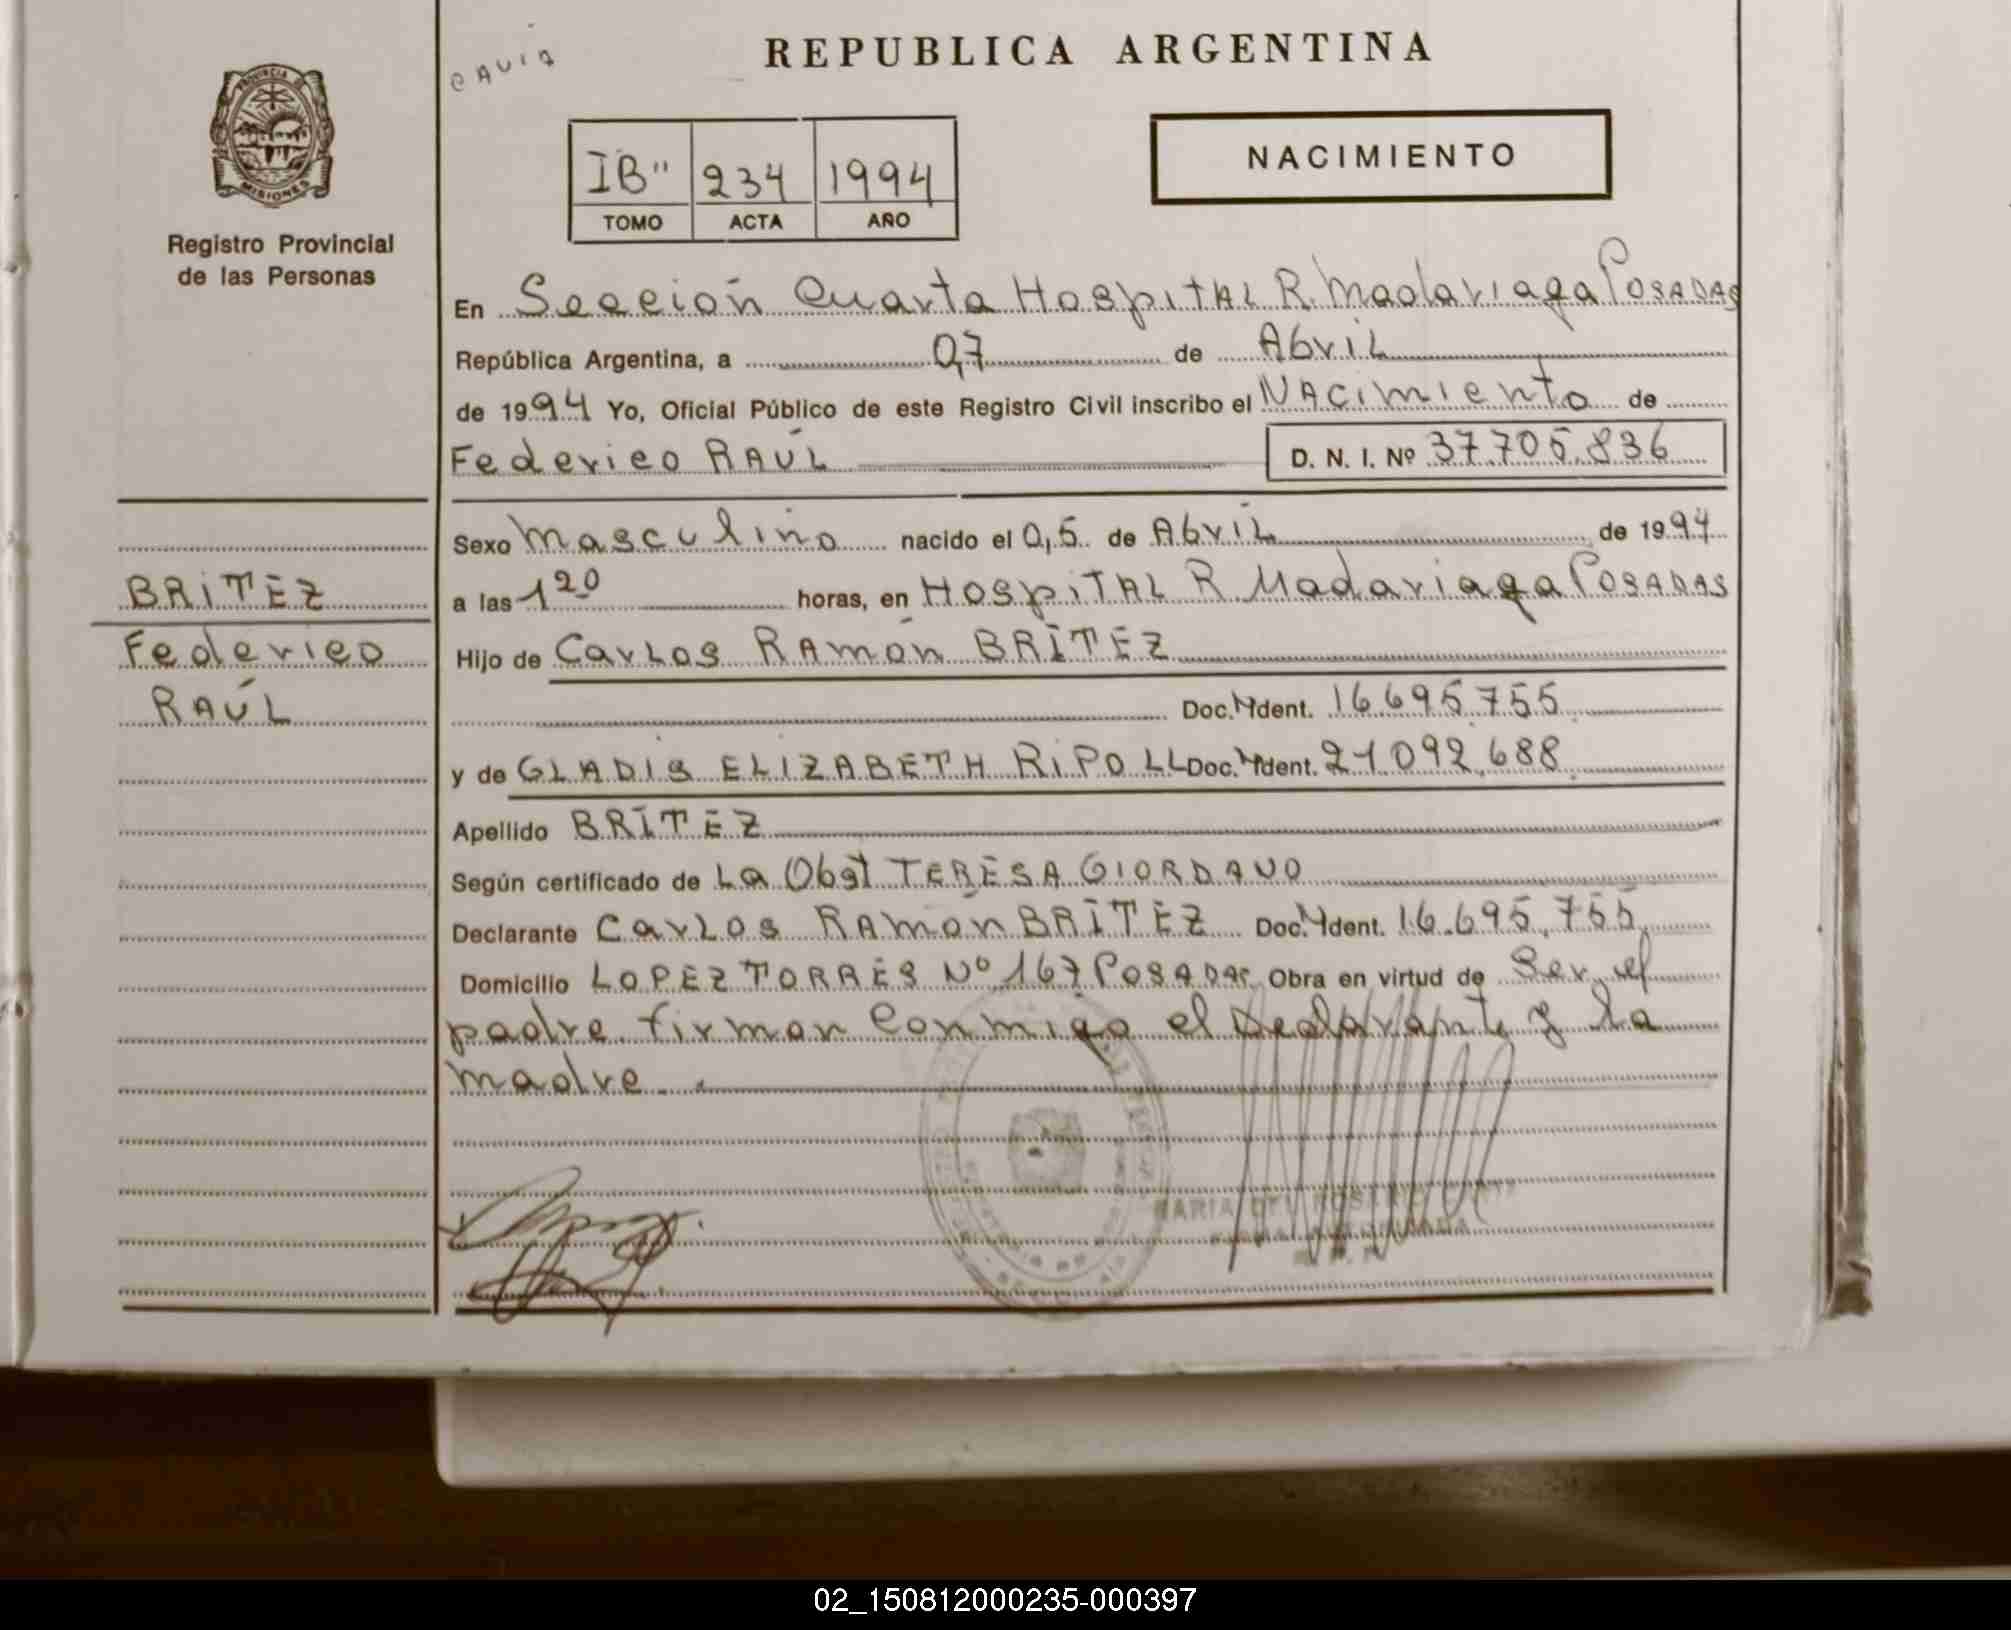 CAVIA
REPUBLICA ARGENTINA
PROVINCIA DE
MISIONES
Registro Provincial
de las Personas
IB" 234 1994
TOMO ACTA AÑO
NACIMIENTO
En Sección Cuarta Hospital R. Madariaga Posadas
República Argentina, a 07 de Abril
de 1994 Yo, Oficial Público de este Registro Civil inscribo el NAcimiento de
Federico RAÚL D. N. I. Nº 37.705.836
Sexo masculino nacido el 05 de Abril de 1994
a las 1 20 horas, en Hospital R. Madariaga Posadas
Hijo de Carlos Ramón BRITEZ
Doc. Ident. 16.695.755
y de GLADIS ELIZABETH RIPOLL Doc. Ident. 21.092.688
Apellido BRITEZ
Según certificado de La Obst TERESA GIORDANO
Declarante Carlos Ramón BRITEZ Doc. Ident. 16.695.755
Domicilio LOPEZ TORRES Nº 167 Posadas Obra en virtud de Ser el
padre. firman Conmigo el Declarante y la
madre.
BRITEZ
Federico
RAÚL
MARIA DEL
02_150812000235-000397